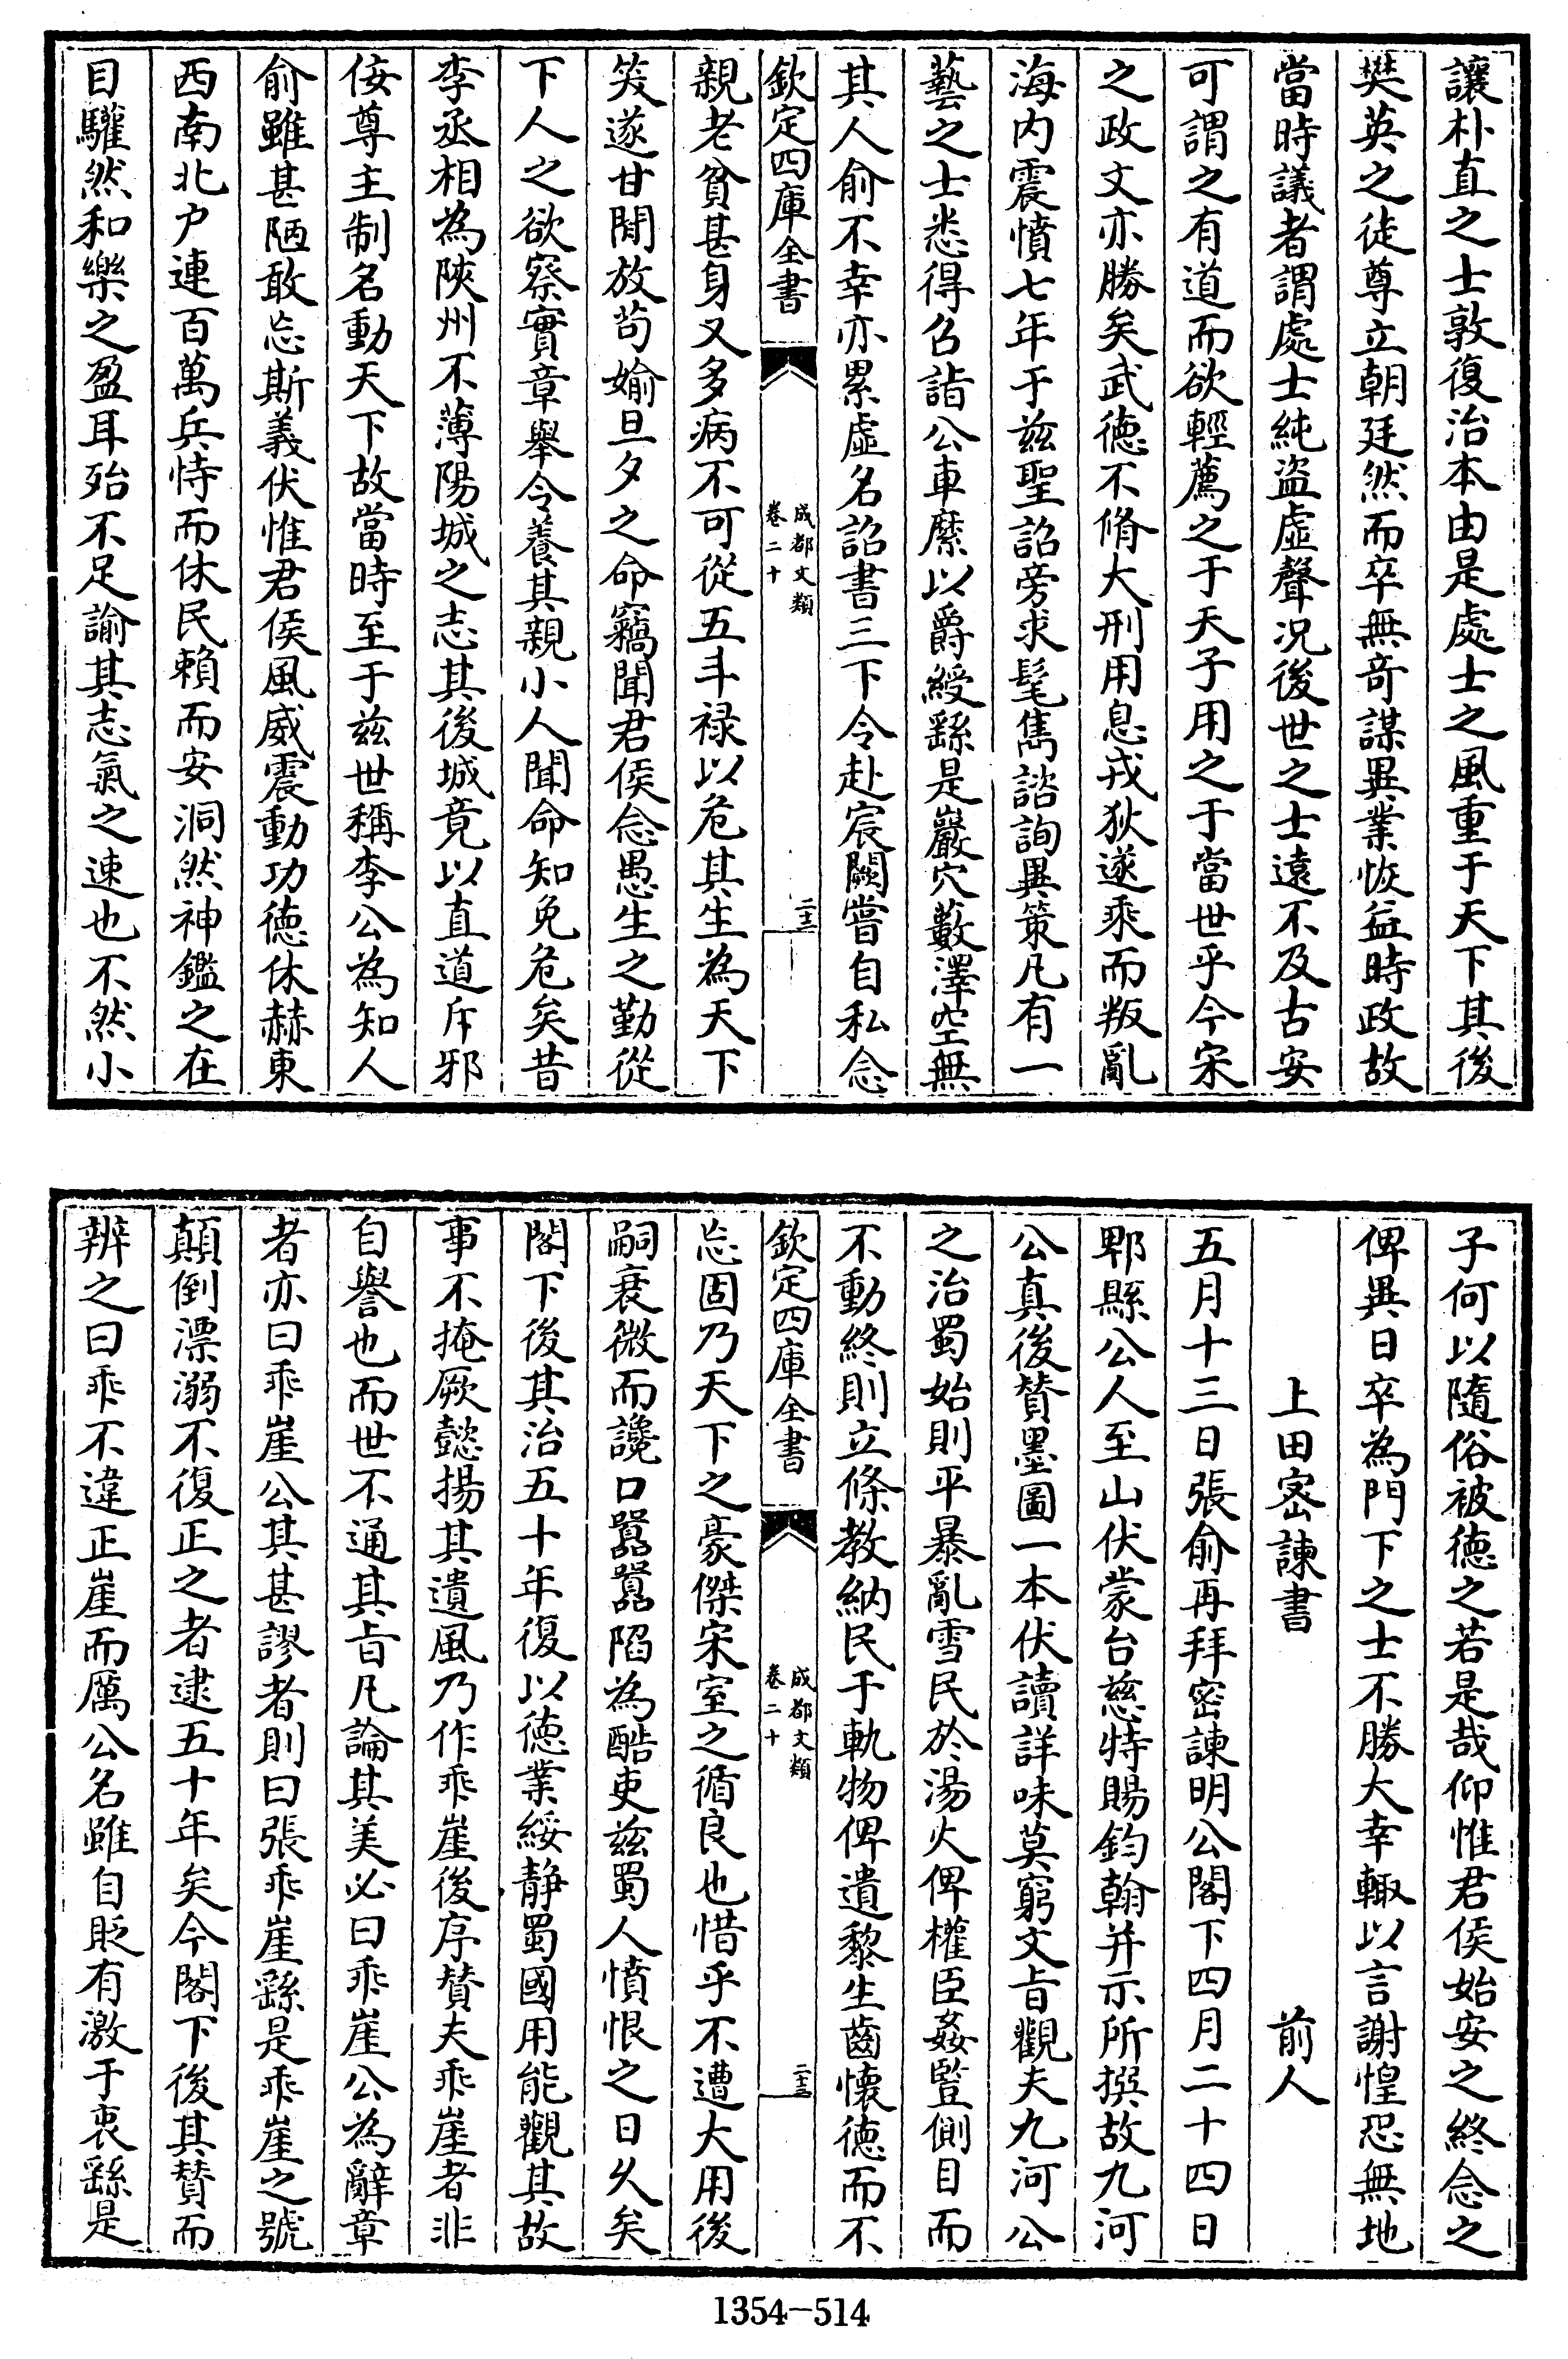 讓朴直之士敦復治本由是處士之風重于天下其後
樊英之徒尊立朝廷然而卒無竒謀異業恢益時政故
當時議者謂處士純盗虛聲况後世之士遠不及古安
可謂之有道而欲輕薦之于天子用之于當世乎今宋
之政文亦勝矣武徳不脩大刑用息戎狄遂乘而叛亂
海内震憤七年于兹聖詔旁求髦雋諮詢異策凡有一
藝之士悉得召詣公車縻以爵綬繇是巖穴藪澤空無
其人俞不幸亦累虛名詔書三下令赴宸闕嘗自私念
欽定四庫全書
成都文類
卷二十
二十三
親老貧甚身又多病不可從五斗禄以危其生為天下
笑遂甘閒放茍媮旦夕之命竊聞君侯念愚生之勤從
下人之欲察實章舉令養其親小人聞命知免危矣昔
李丞相為陜州不薄陽城之志其後城竟以直道斥邪
佞尊主制名動天下故當時至于兹世稱李公為知人
俞雖甚陋敢忘斯義伏惟君侯風威震動功徳休赫東
西南北户連百萬兵恃而休民賴而安洞然神鑑之在
目驩然和樂之盈耳殆不足諭其志氣之速也不然小
子何以隨俗被徳之若是哉仰惟君侯始安之終念之
俾異日卒為門下之士不勝大幸輙以言謝惶恐無地
上田宻諫書
前人
五月十三日張俞再拜密諫明公閣下四月二十四日
郫縣公人至山伏蒙台慈特賜鈞翰并示所撰故九河
公真後賛墨圖一本伏讀詳味莫窮文旨觀夫九河公
之治蜀始則平暴亂雪民於湯火俾權臣姦豎側目而
不動終則立條教納民于軌物俾遺黎生齒懐徳而不
欽定四庫全書
成都文類
卷二十
二十三
忘固乃天下之豪傑宋室之循良也惜乎不遭大用後
嗣衰微而讒口囂囂陷為酷吏兹蜀人憤恨之日久矣
閣下後其治五十年復以徳業綏静蜀國用能觀其故
事不掩厥懿揚其遺風乃作乖崖後序賛夫乖崖者非
自譽也而世不通其旨凡論其美必曰乖崖公為辭章
者亦曰乖崖公其甚謬者則曰張乖崖繇是乖崖之號
顛倒漂溺不復正之者逮五十年矣今閣下後其賛而
辨之曰乖不違正崖而厲公名雖自貶有激于衷繇是
1354—514